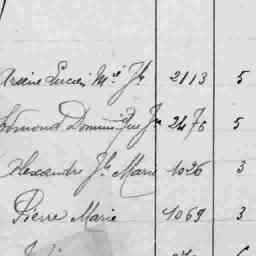 Arsène Lucien M.el Jh 2113 5
Edmond Dominique Jn 2476 5
Alexandre Jh Marie 1026 3
Pierre Marie 1069 3